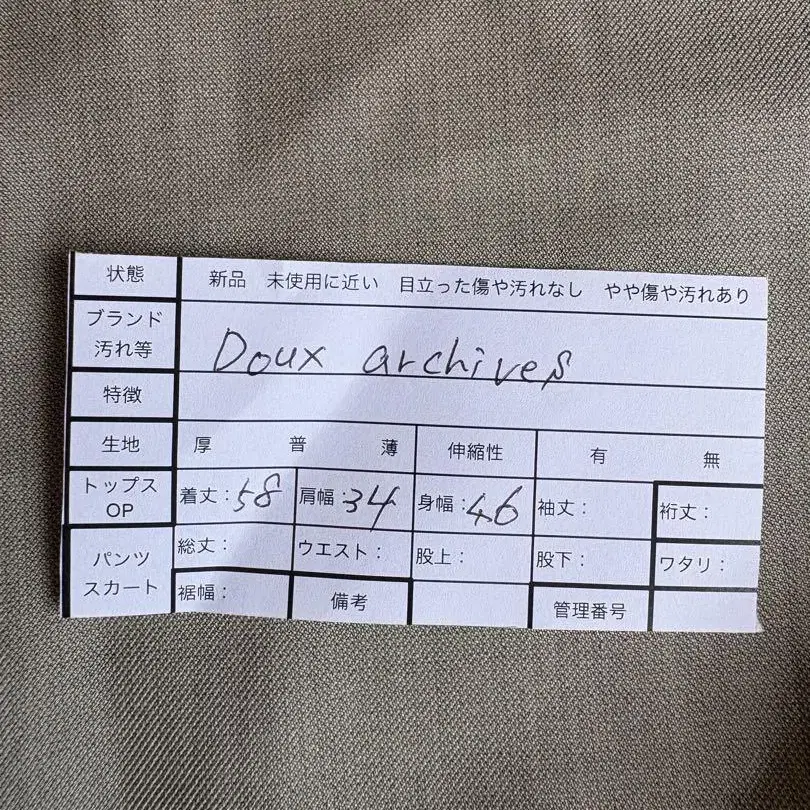 状態 新品 未使用に近い 目立った傷や汚れなし やや傷や汚れあり
ブランド
汚れ等 Doux archives
特徴
生地 厚 普 薄 伸縮性 有 無
トップス
OP 着丈：58 肩幅：34 身幅：46 袖丈： 裄丈：
パンツ
スカート 総丈： ウエスト： 股上： 股下： ワタリ：
裾幅： 備考 管理番号